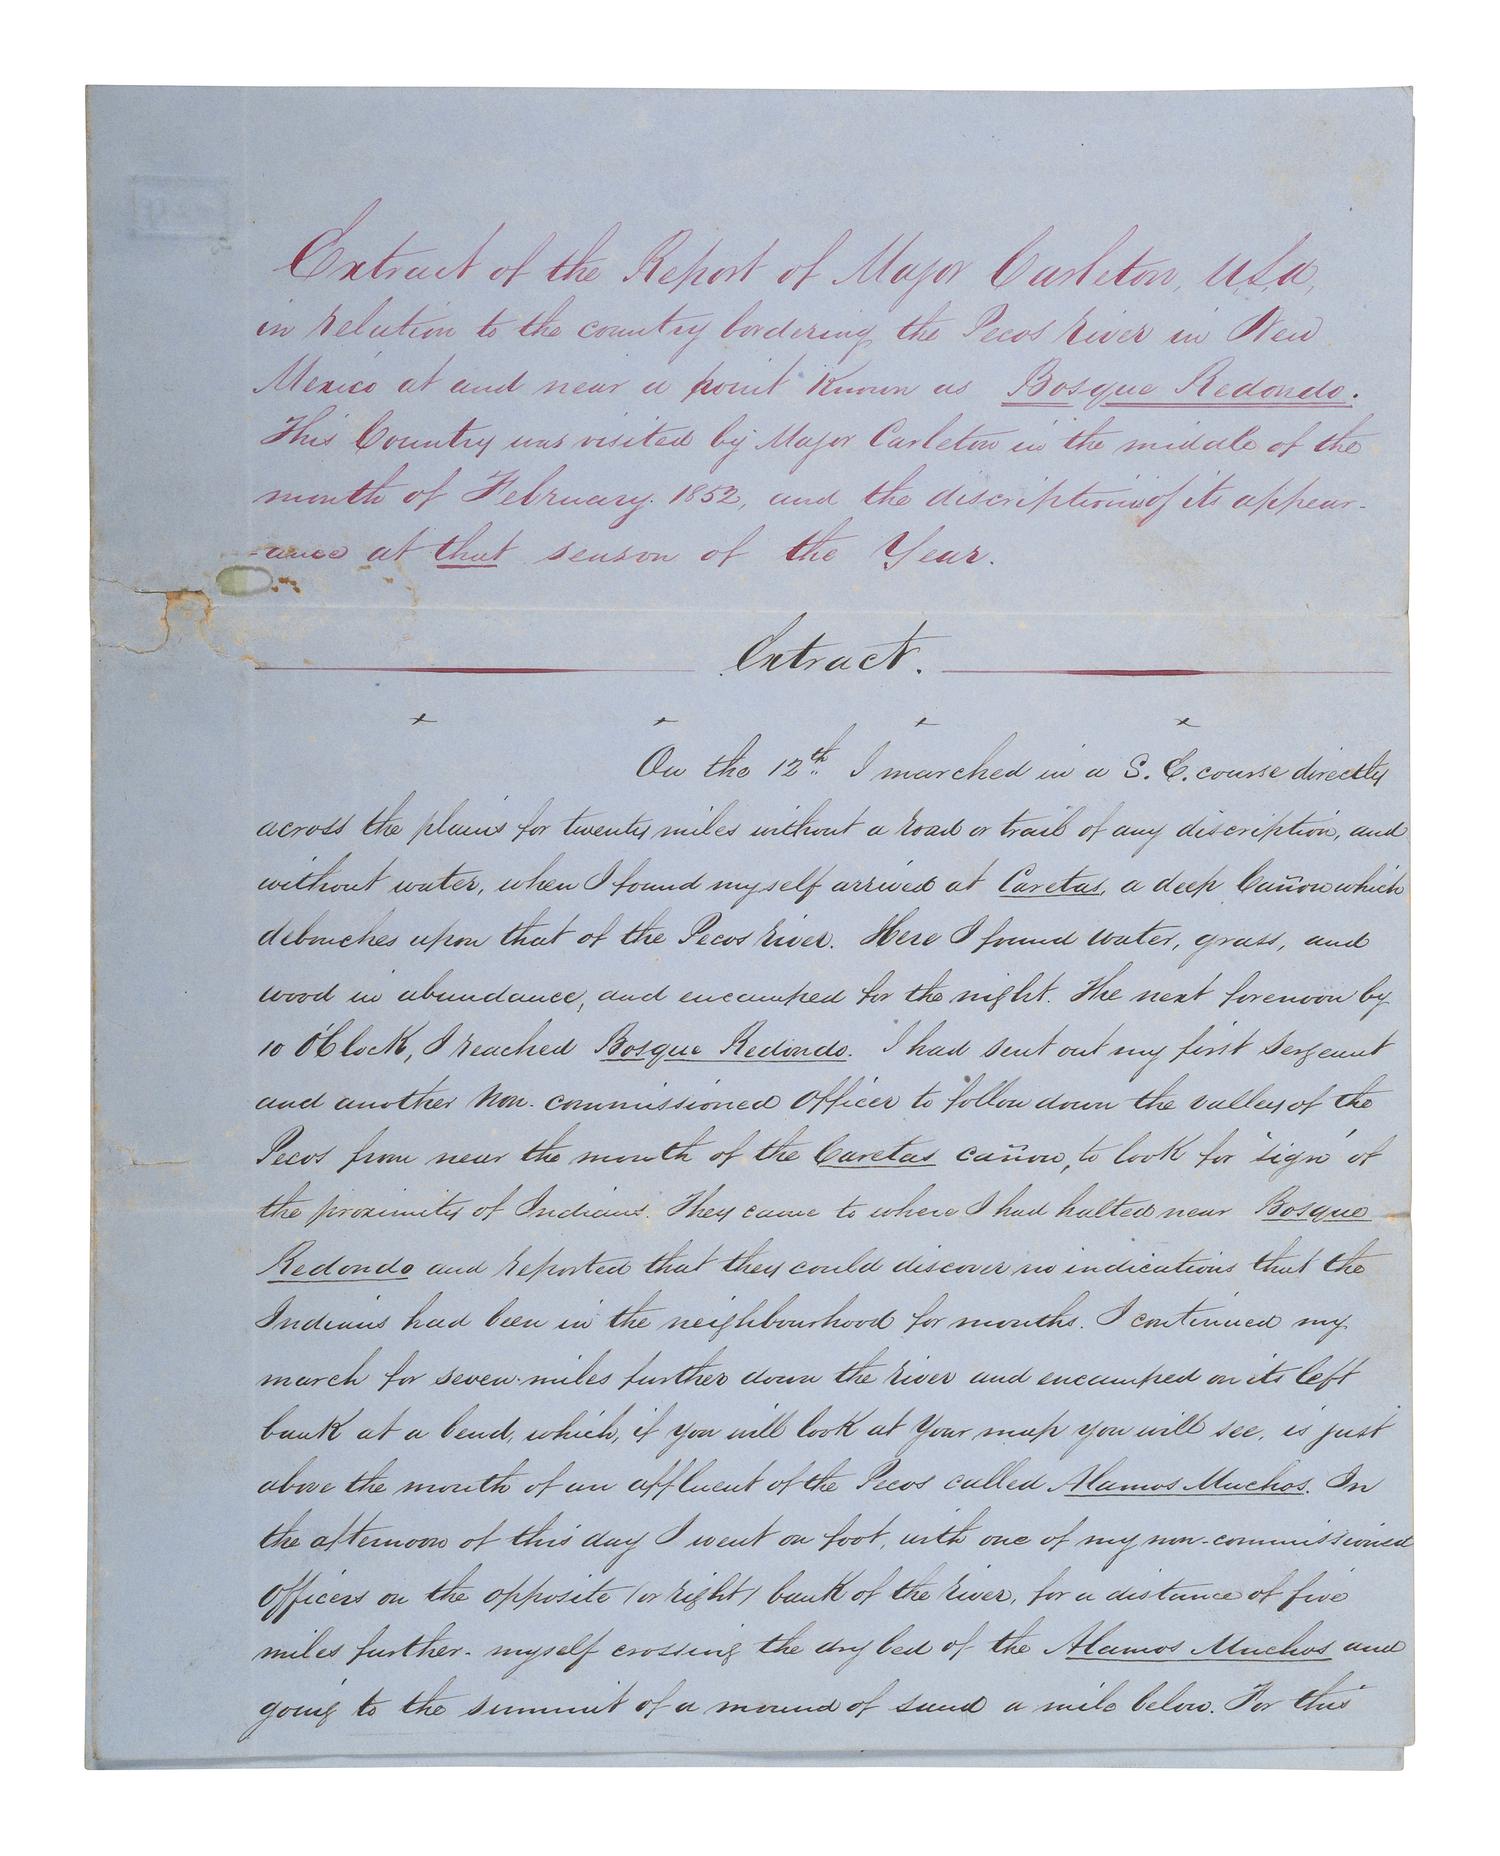 Extract of the Report of Major Carleton, U.S.A,
in relation to the country bordering the Pecos river in New
Mexico at and near a point known as Bosque Redondo.
This Country was visited by Major Carleton in the middle of the
month of February. 1852, and the discription is of its appear-
-ance at that season of the Year.
Extract.
x x x x
On the 12th I marched in a S. E. course directly
across the plains for twenty miles without a road or trail of any discription, and
without water, when I found myself arrived at Caretas, a deep Cañon which
debouches upon that of the Pecos river. Here I found water, grass, and
wood in abundance, and encamped for the night. The next forenoon by
10 O'Clock, I reached Bosque Redondo. I had sent out my first Sergeant
and another Non-commissioned Officer to follow down the valley of the
Pecos from near the mouth of the Caretas cañon, to look for "sign" of
the proximity of Indians. They came to where I had halted near Bosque
Redondo and reported that they could discover no indications that the
Indians had been in the neighbourhood for months. I continued my
march for seven miles further down the river and encamped on its left
bank at a bend, which, if you will look at your map you will see, is just
above the mouth of an affluent of the Pecos called Alamos Muchos. In
the afternoon of this day I went on foot, with one of my non-commissioned
Officers on the opposite (or right) bank of the river, for a distance of five
miles further- myself crossing the dry bed of the Alamos Muchos and
going to the summit of a mound of sand a mile below. For this